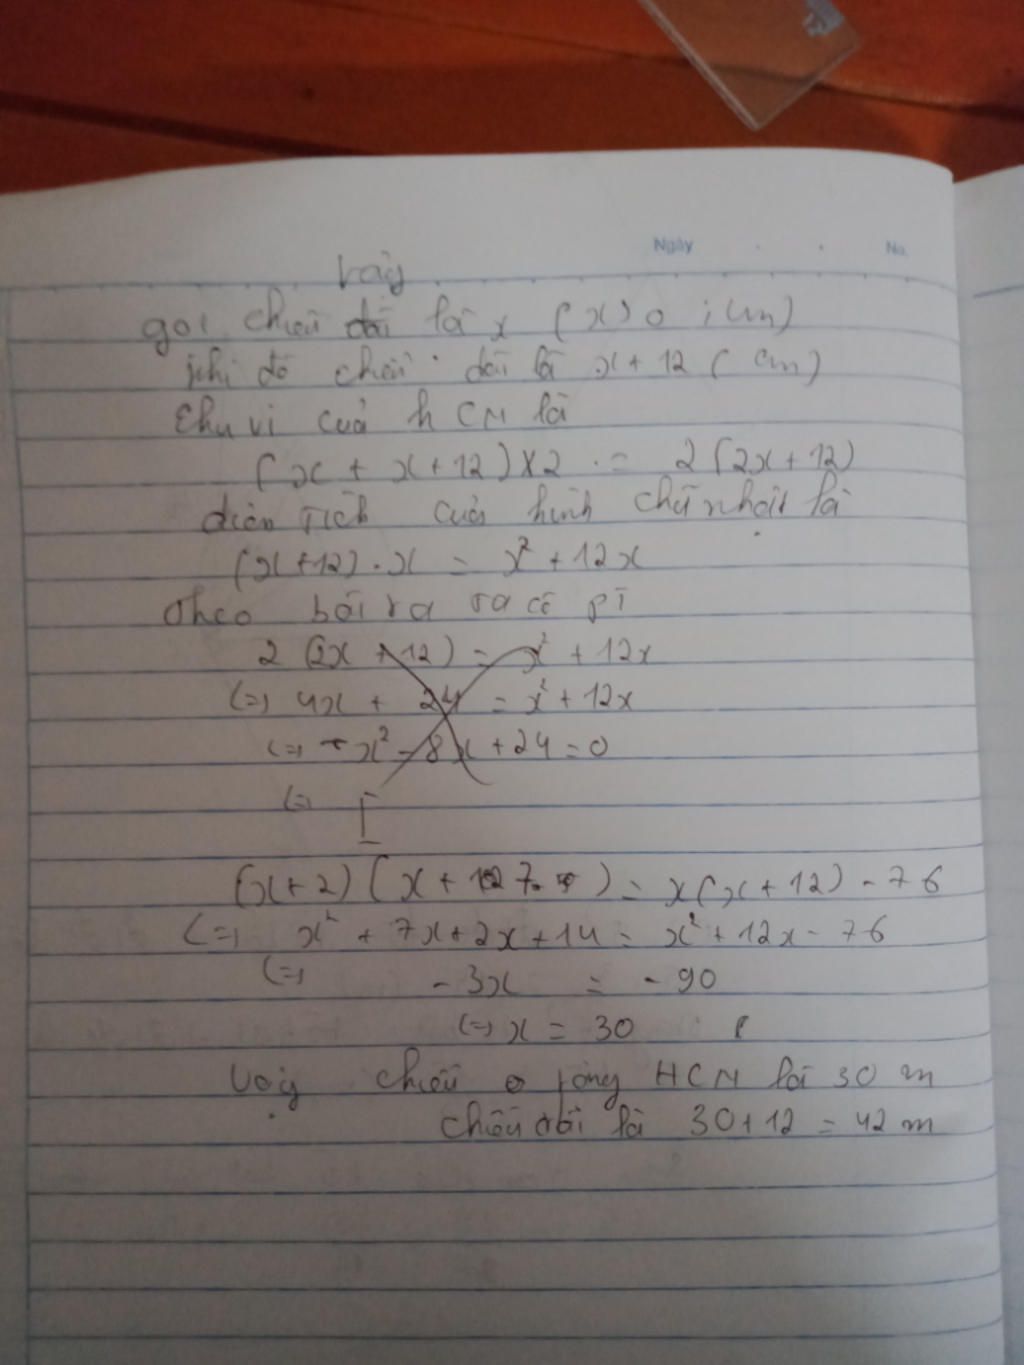 Ngày No.
rộng
gọi chiều dài là x (x>0; cm)
khi đó chiều dài là x+12 (cm)
chu vi của hCN là
(x + x+12)x2 = 2(2x+12)
diện tích của hình chữ nhật là
(x+12).x = x² + 12x
Theo bài ra ta có pt
2(2x + 12) = x² + 12x
(=) 4x + 24 = x² + 12x
(=) - x² - 8x + 24 = 0
(=) [
(x+2)(x+12 7) = x(x+12) - 76
(=) x² + 7x+2x+14 = x² + 12x - 76
(=) - 3x = - 90
(=) x = 30
Vậy chiều rộng HCN là 30 m
chiều dài là 30+12 = 42 m